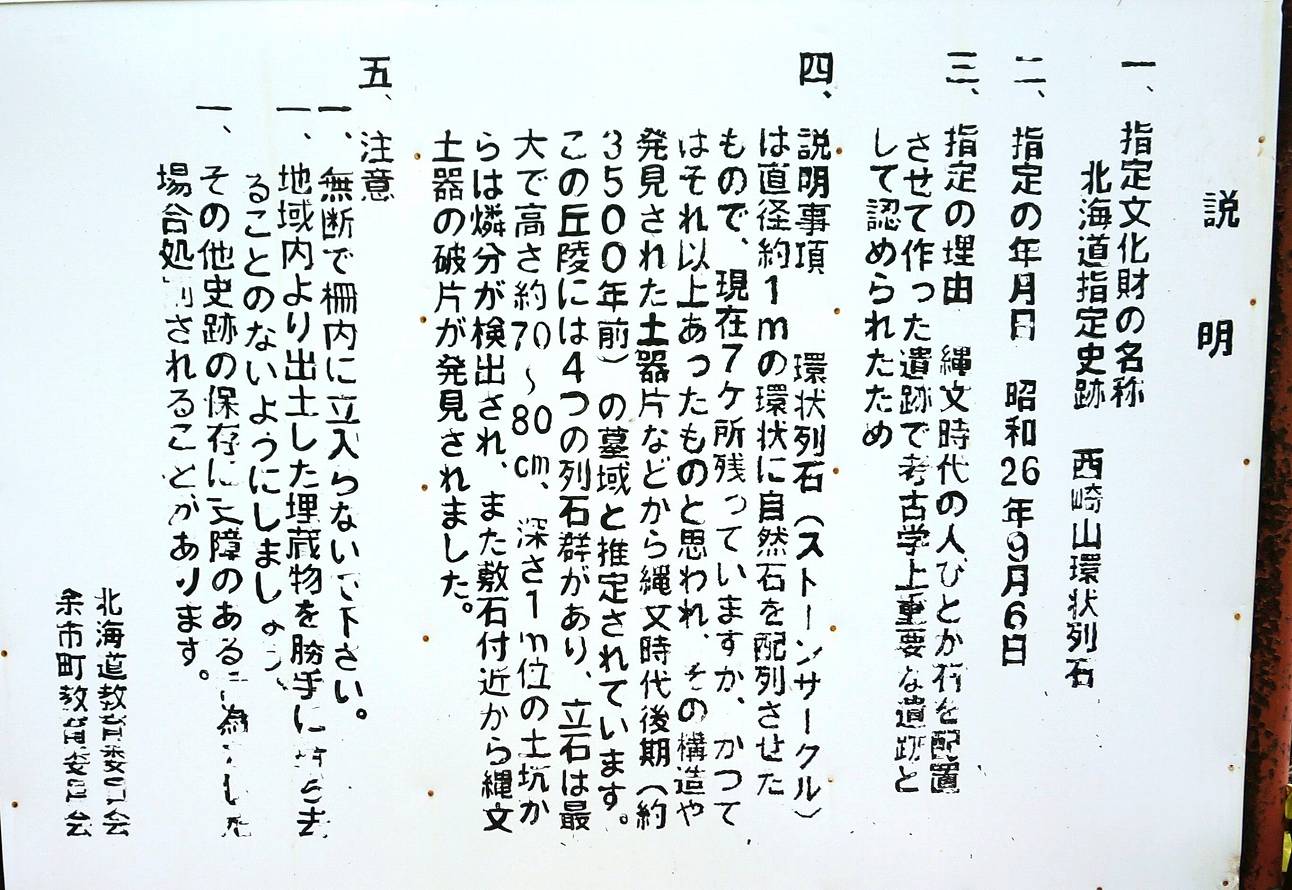 説明
一、指定文化財の名称
北海道指定史跡 西崎山環状列石
二、指定の年月日 昭和26年9月6日
三、指定の理由 縄文時代の人びとが石を配置
させて作った遺跡で考古学上重要な遺跡と
して認められたため
四、説明事項 環状列石(ストーンサークル)
は直径約1mの環状に自然石を配列させた
もので、現在7ケ所残っていますが、かつて
はそれ以上あったものと思われ、その構造や
発見された土器片などから縄文時代後期(約
3500年前)の墓域と推定されています。
この丘陵には4つの列石群があり、立石は最
大で高さ約70〜80cm、深さ1m位の土坑か
らは燐分が検出され、また敷石付近から縄文
土器の破片が発見されました。
五、注意
一、無断で柵内に立入らないで下さい。
一、地域内より出土した埋蔵物を勝手に持ち去
ることのないようにしましょう、
一、その他史跡の保存に支障のある行為をした
場合処罰されることがあります。
北海道教育委員会
余市町教育委員会